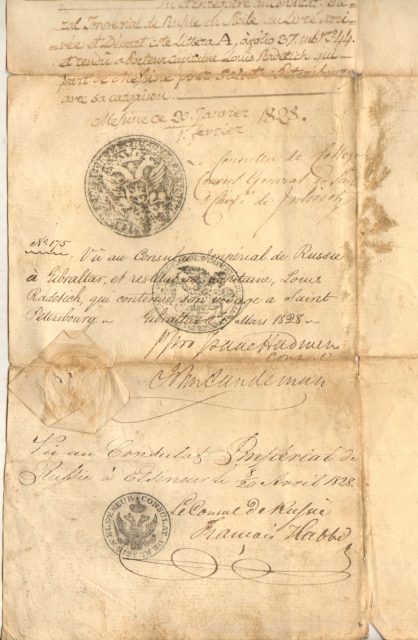 Vu et enregistré au Consulat Gé-
ral Imperial de Russie en Sicile au Livre
et Dévoat cte Littera A, à folio 37. sub N° 44.
et rendu a porteur Capitaine Louis Radetich qui
part de Messine pour Saint Petersbourg
avec sa cargaison.
Messine ce 20 Janvier 1828.
1 février
Le Conseiller de
Consul General
Chev. de
N° 175
Vû au Consulat Impérial de Russie
à Gibraltar, et restitué au Capitaine, Louis
Radetich, qui continue son voyage à Saint
Petersbourg. Gibraltar le Mars 1828.
Ppro Isaac
Consul
John Sandeman
Vu au Consulat Impérial de
Russie à Elseneur le 8/20 Avril 1828.
Le Consul de Russie
CONSULAT DE RUSSIE ELSENEUR